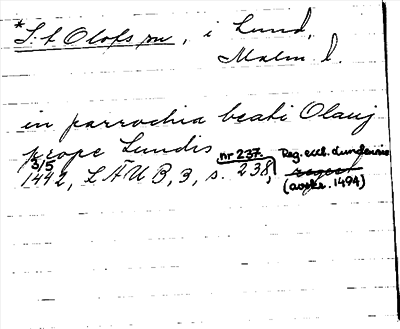 *S:t Olofs sn, i Lund,
Malm l.
in parrochia beati Olauj
prope Lundis
3/5 nr 237. Reg. eccl. Lundensis
1442, LÄUB, 3, s. 238,
(avskr. 1494)